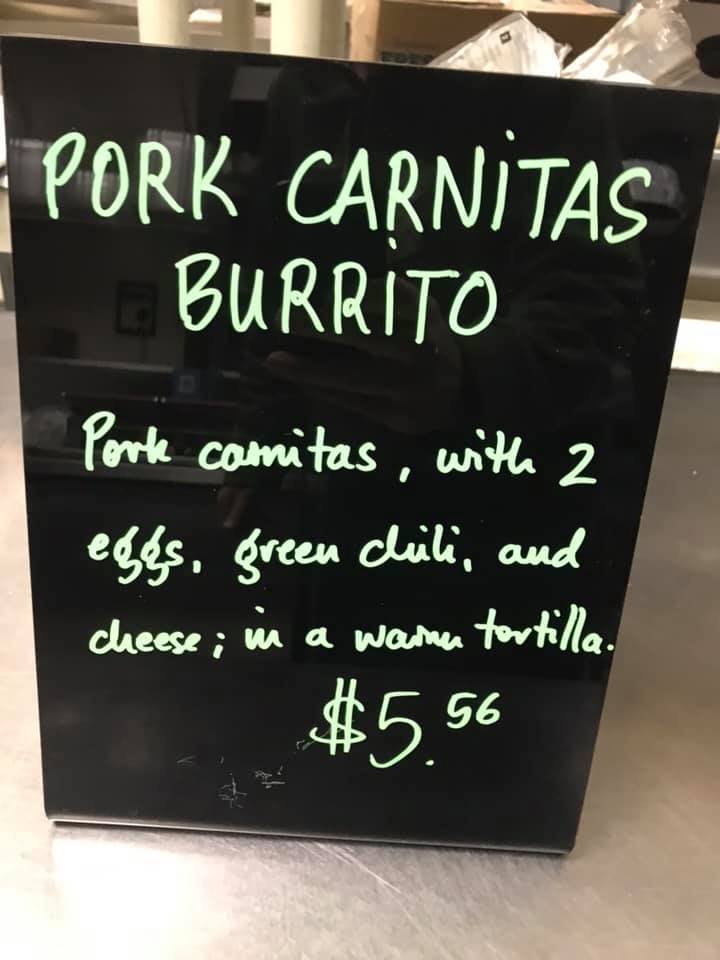 PORK CARNITAS
BURRITO
Pork carnitas, with 2
eggs, green chili, and
cheese; in a warm tortilla.
$5.56